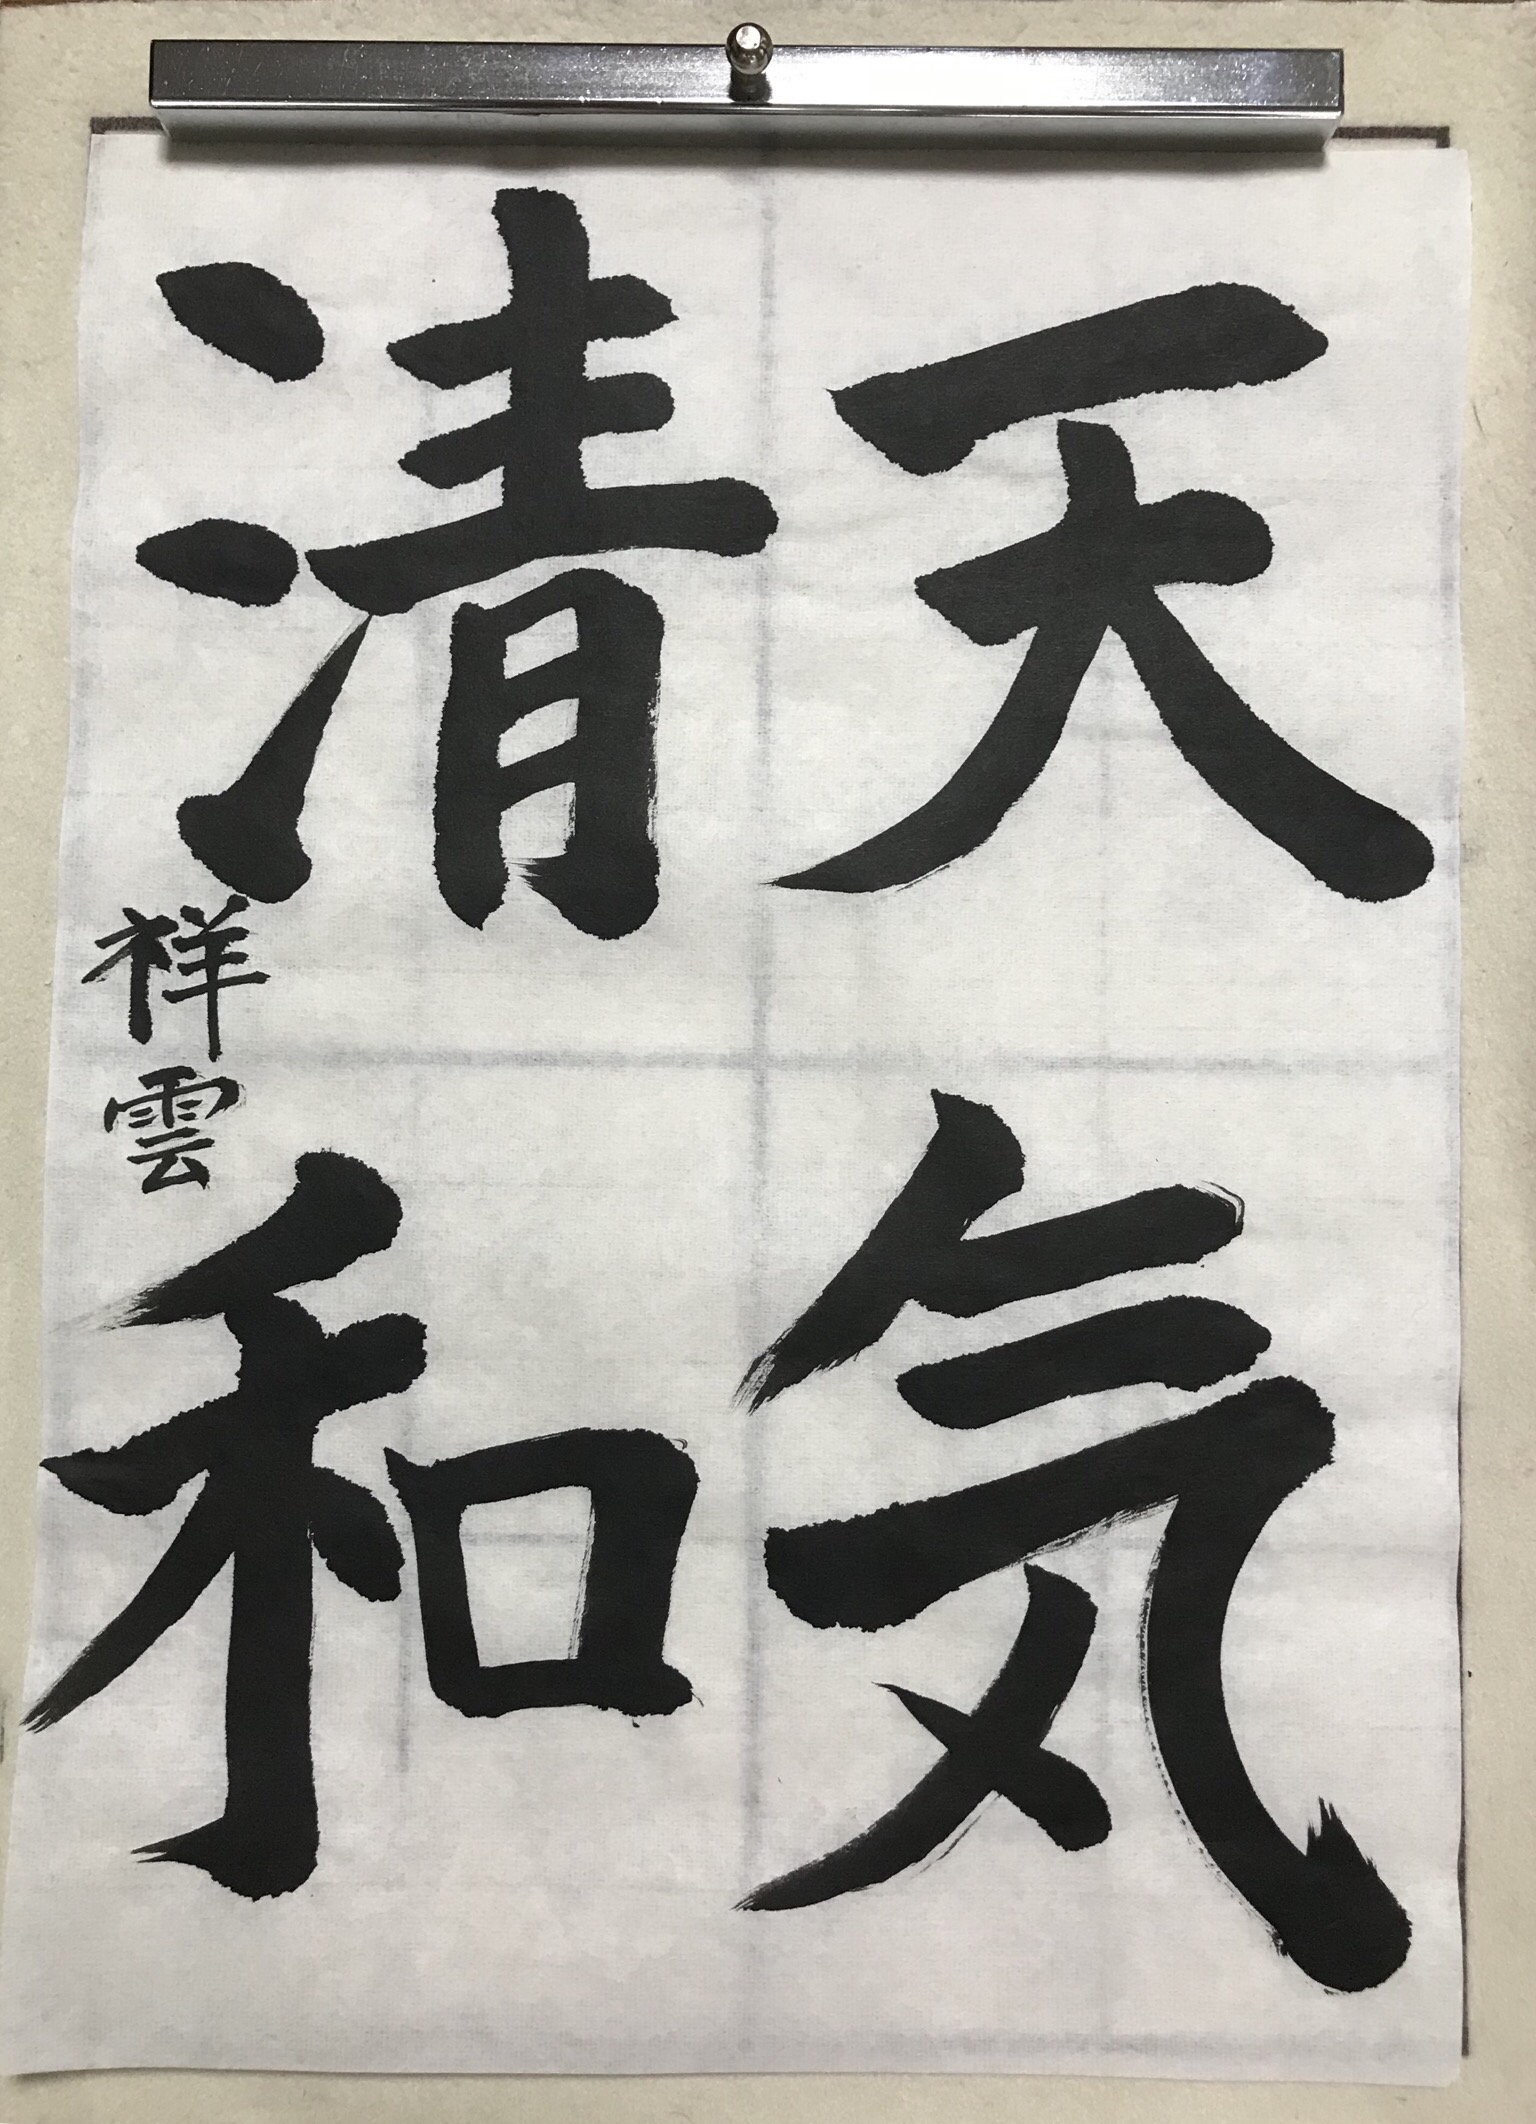 天気
清和
祥雲